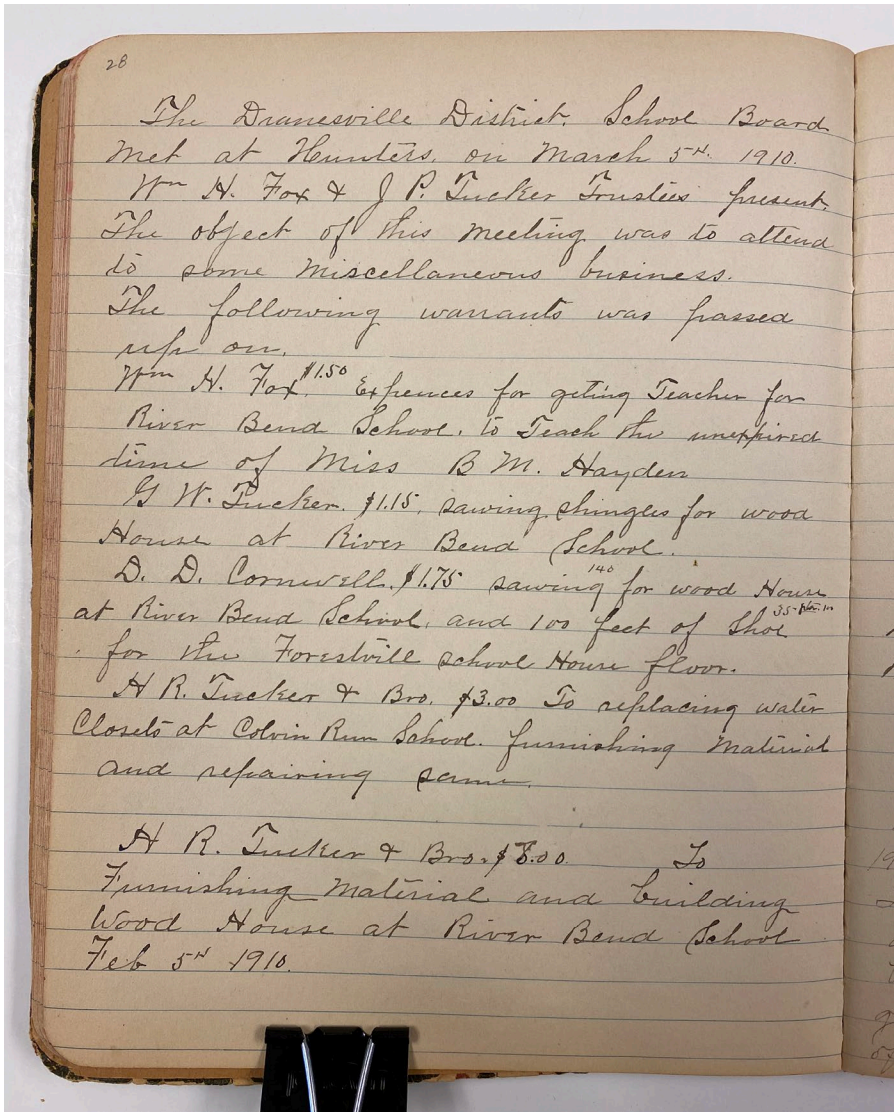 28
The Dranesville District. School Board
Met at Hunters, on March 5th. 1910.
Wm H. Fox & J P. Tucker Trustees present.
The object of this meeting was to attend
to some miscellaneous business.
The following warrants was passed
up on.
Wm H. Fox, $1.50 Expences for geting Teacher for
River Bend School, to Teach the unexpired
time of Miss B M. Hayden
G W. Tucker. $1.15, sawing shingles for wood
House at River Bend School.
D. D. Cornwell. $1.75 sawing 140 for wood House
at River Bend School, and 100 feet of Shoe 35
for the Forestvill school House floor.
H R. Tucker & Bro. $3.00 To replacing water
Closets at Colvin Run School. furnishing Material
and repairing same.
H R. Tucker & Bro. $8.00 To
Furnishing Material and building
Wood House at River Bend School
Feb 5th 1910.